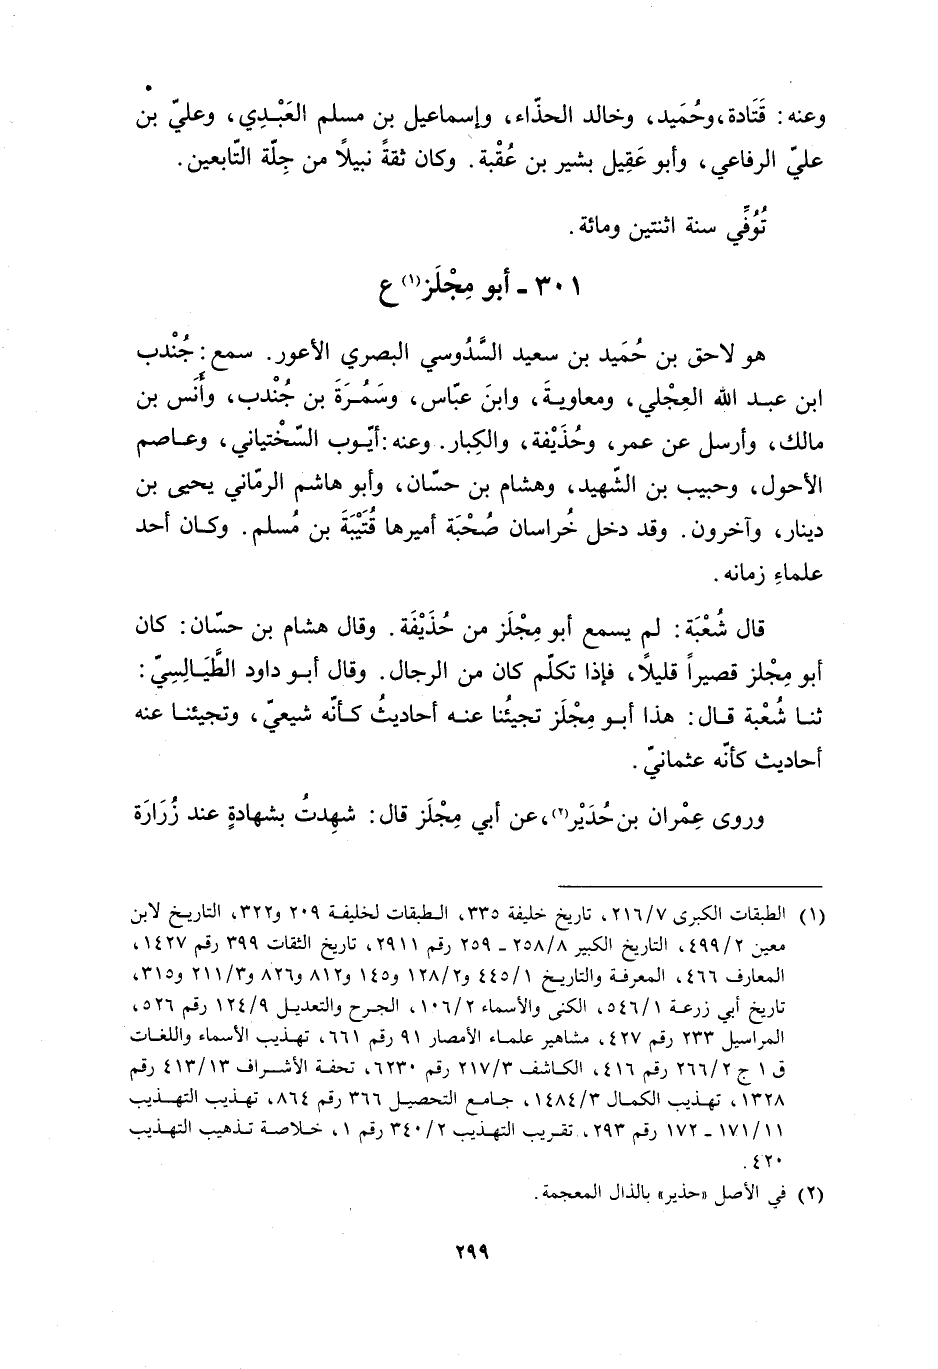 وعنه: قَتَادة، وحُمَيد، وخالد الحذّاء، وإسماعيل بن مسلم العَبْدِي، وعليّ بن
عليّ الرفاعي، وأبو عَقِيل بشير بن عُقْبة. وكان ثقةً نبيلاً من جِلّة التّابعين.
تُوُفِّي سنة اثنتين ومائة.
٣٠١ - أبو مِجْلَز(١) ع
هو لاحق بن حُمَيد بن سعيد السَّدُوسي البصري الأعور. سمع: جُنْدب
ابن عبد الله العِجْلي، ومعاويةَ، وابنَ عبّاس، وسَمُرَةَ بن جُنْدب، وأَنَس بن
مالك، وأرسل عن عمر، وحُذَيْفة، والكِبار. وعنه: أيّوب السّخْتياني، وعاصم
الأحول، وحبيب بن الشّهيد، وهشام بن حسّان، وأبو هاشم الرمّاني يحيى بن
دينار، وآخرون. وقد دخل خُراسان صُحْبَة أميرها قُتَيْبَةَ بن مُسلم. وكان أحد
علماءِ زمانه.
قال شُعْبَة: لم يسمع أبو مِجْلَز من حُذَيْفَة. وقال هشام بن حسّان: كان
أبو مِجْلز قصيراً قليلاً، فإذا تكلّم كان من الرجال. وقال أبو داود الطَّيَالِسِيّ:
ثنا شُعْبة قال: هذا أبو مِجْلَز تجيئُنا عنه أحاديثُ كأنّه شيعيّ، وتجيئنا عنه
أحاديث كأنّه عثمانيّ.
وروى عِمْران بن حُدَيْر(٢)، عن أبي مِجْلَز قال: شهِدتُ بشهادةٍ عند زُرَارَة
(١) الطبقات الكبرى ٢١٦/٧، تاريخ خليفة ٣٣٥، الطبقات لخليفة ٢٠٩ و٣٢٢، التاريخ لابن
معين ٤٩٩/٢، التاريخ الكبير ٢٥٨/٨ - ٢٥٩ رقم ٢٩١١، تاريخ الثقات ٣٩٩ رقم ١٤٢٧،
المعارف ٤٦٦، المعرفة والتاريخ ٤٤٥/١ و١٢٨/٢ و١٤٥ و٨١٢ و٨٢٦ و٢١١/٣ و٣١٥،
تاريخ أبي زرعة ٥٤٦/١، الكنى والأسماء ١٠٦/٢، الجرح والتعديل ١٢٤/٩ رقم ٥٢٦،
المراسيل ٢٣٣ رقم ٤٢٧، مشاهير علماء الأمصار ٩١ رقم ٦٦١، تهذيب الأسماء واللغات
ق ١ ج ٢٦٦/٢ رقم ٤١٦، الكاشف ٢١٧/٣ رقم ٦٢٣٠، تحفة الأشراف ٤١٣/١٣ رقم
١٣٢٨، تهذيب الكمال ١٤٨٤/٣، جامع التحصيل ٣٦٦ رقم ٨٦٤، تهذيب التهذيب
١٧١/١١ - ١٧٢ رقم ٢٩٣، تقريب التهذيب ٣٤٠/٢ رقم ١، خلاصة تذهيب التهذيب
٤٢٠.
(٢) في الأصل «حذير» بالذال المعجمة.
٢٩٩